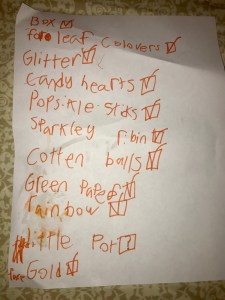 Box
foro leaf Cloavers
Glitter
Candy hearts
Popsikle Sticks
Sparkley ribin
Cotten balls
Green Paper
rainbow
little Pot
Gold